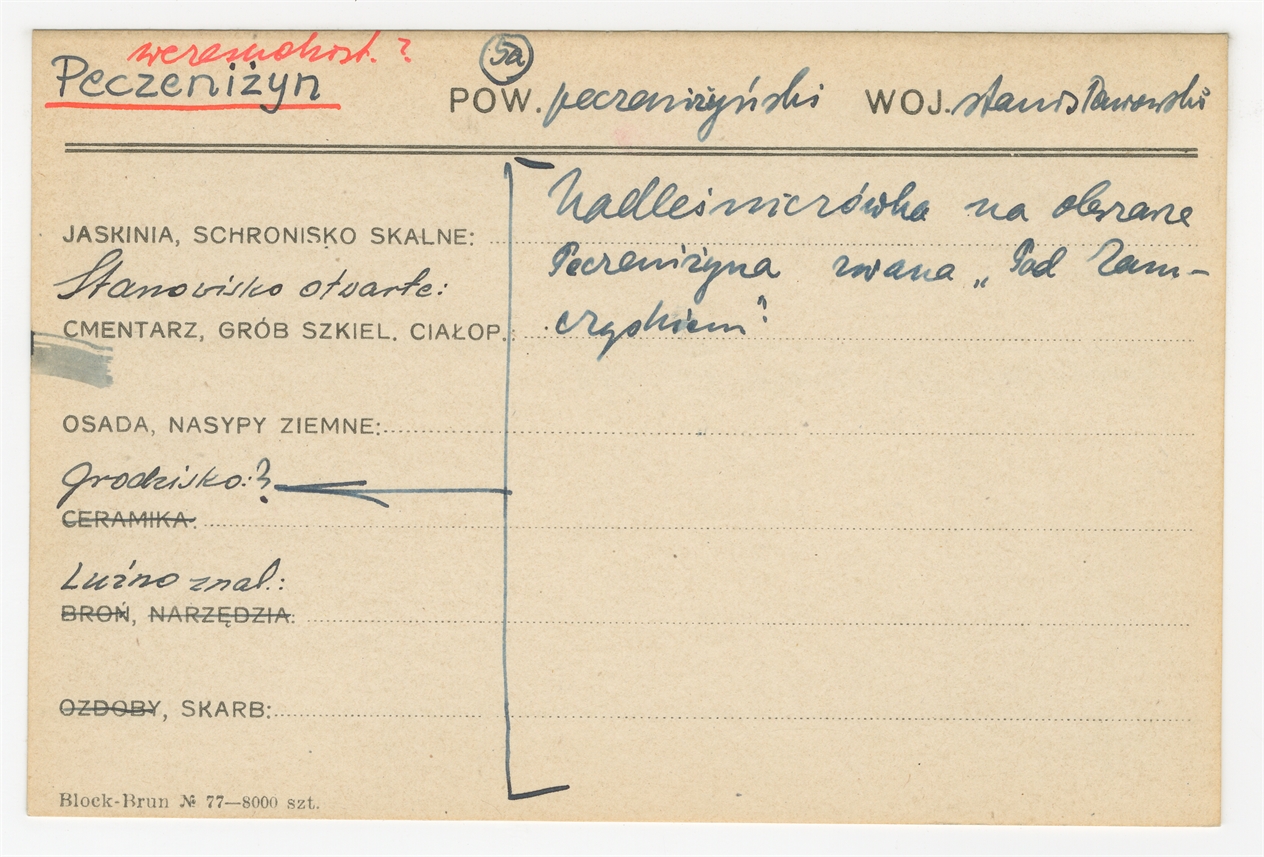 wczesnohist. ?
Peczeniżyn
5a
POW. peczeniżyński WOJ. stanisławowski
Nadleśniczówka na obszarze
JASKINIA, SCHRONISKO SKALNE:
Peczeniżyna zwana „Pod Zam-
Stanowisko otwarte:
czyskiem".
CMENTARZ, GRÓB SZKIEL. CIAŁOP.:
OSADA, NASYPY ZIEMNE:
Grodzisko:?
CERAMIKA:
Luźno znal.:
BROŃ, NARZĘDZIA:
OZDOBY, SKARB:
Block-Brun № 77—8000 szt.